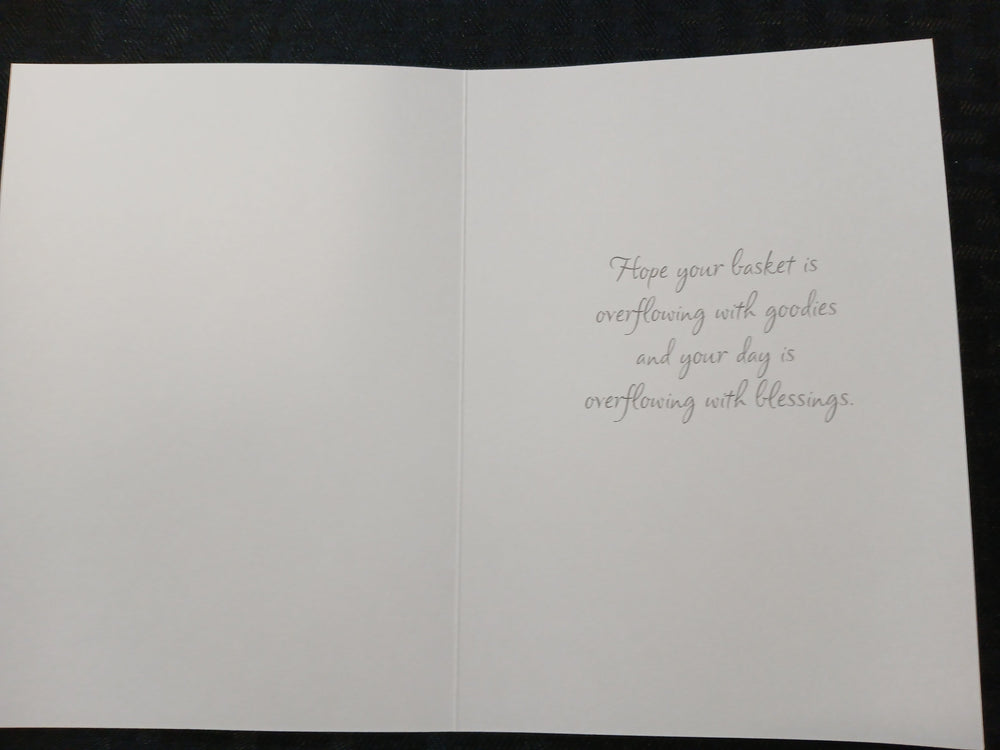 Hope your basket is
overflowing with goodies
and your day is
overflowing with blessings.